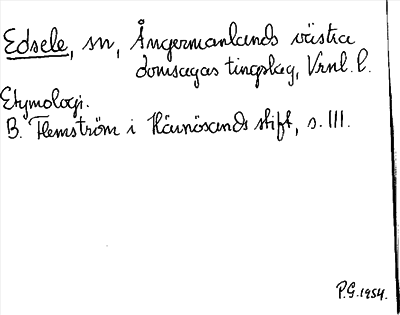 Edsele, sn, Ångermanlands västra
domsagas tingslag, Vrnl. l.
Etymologi.
B. Flemström i Härnösands stift, s. 111.
P.G. 1954.